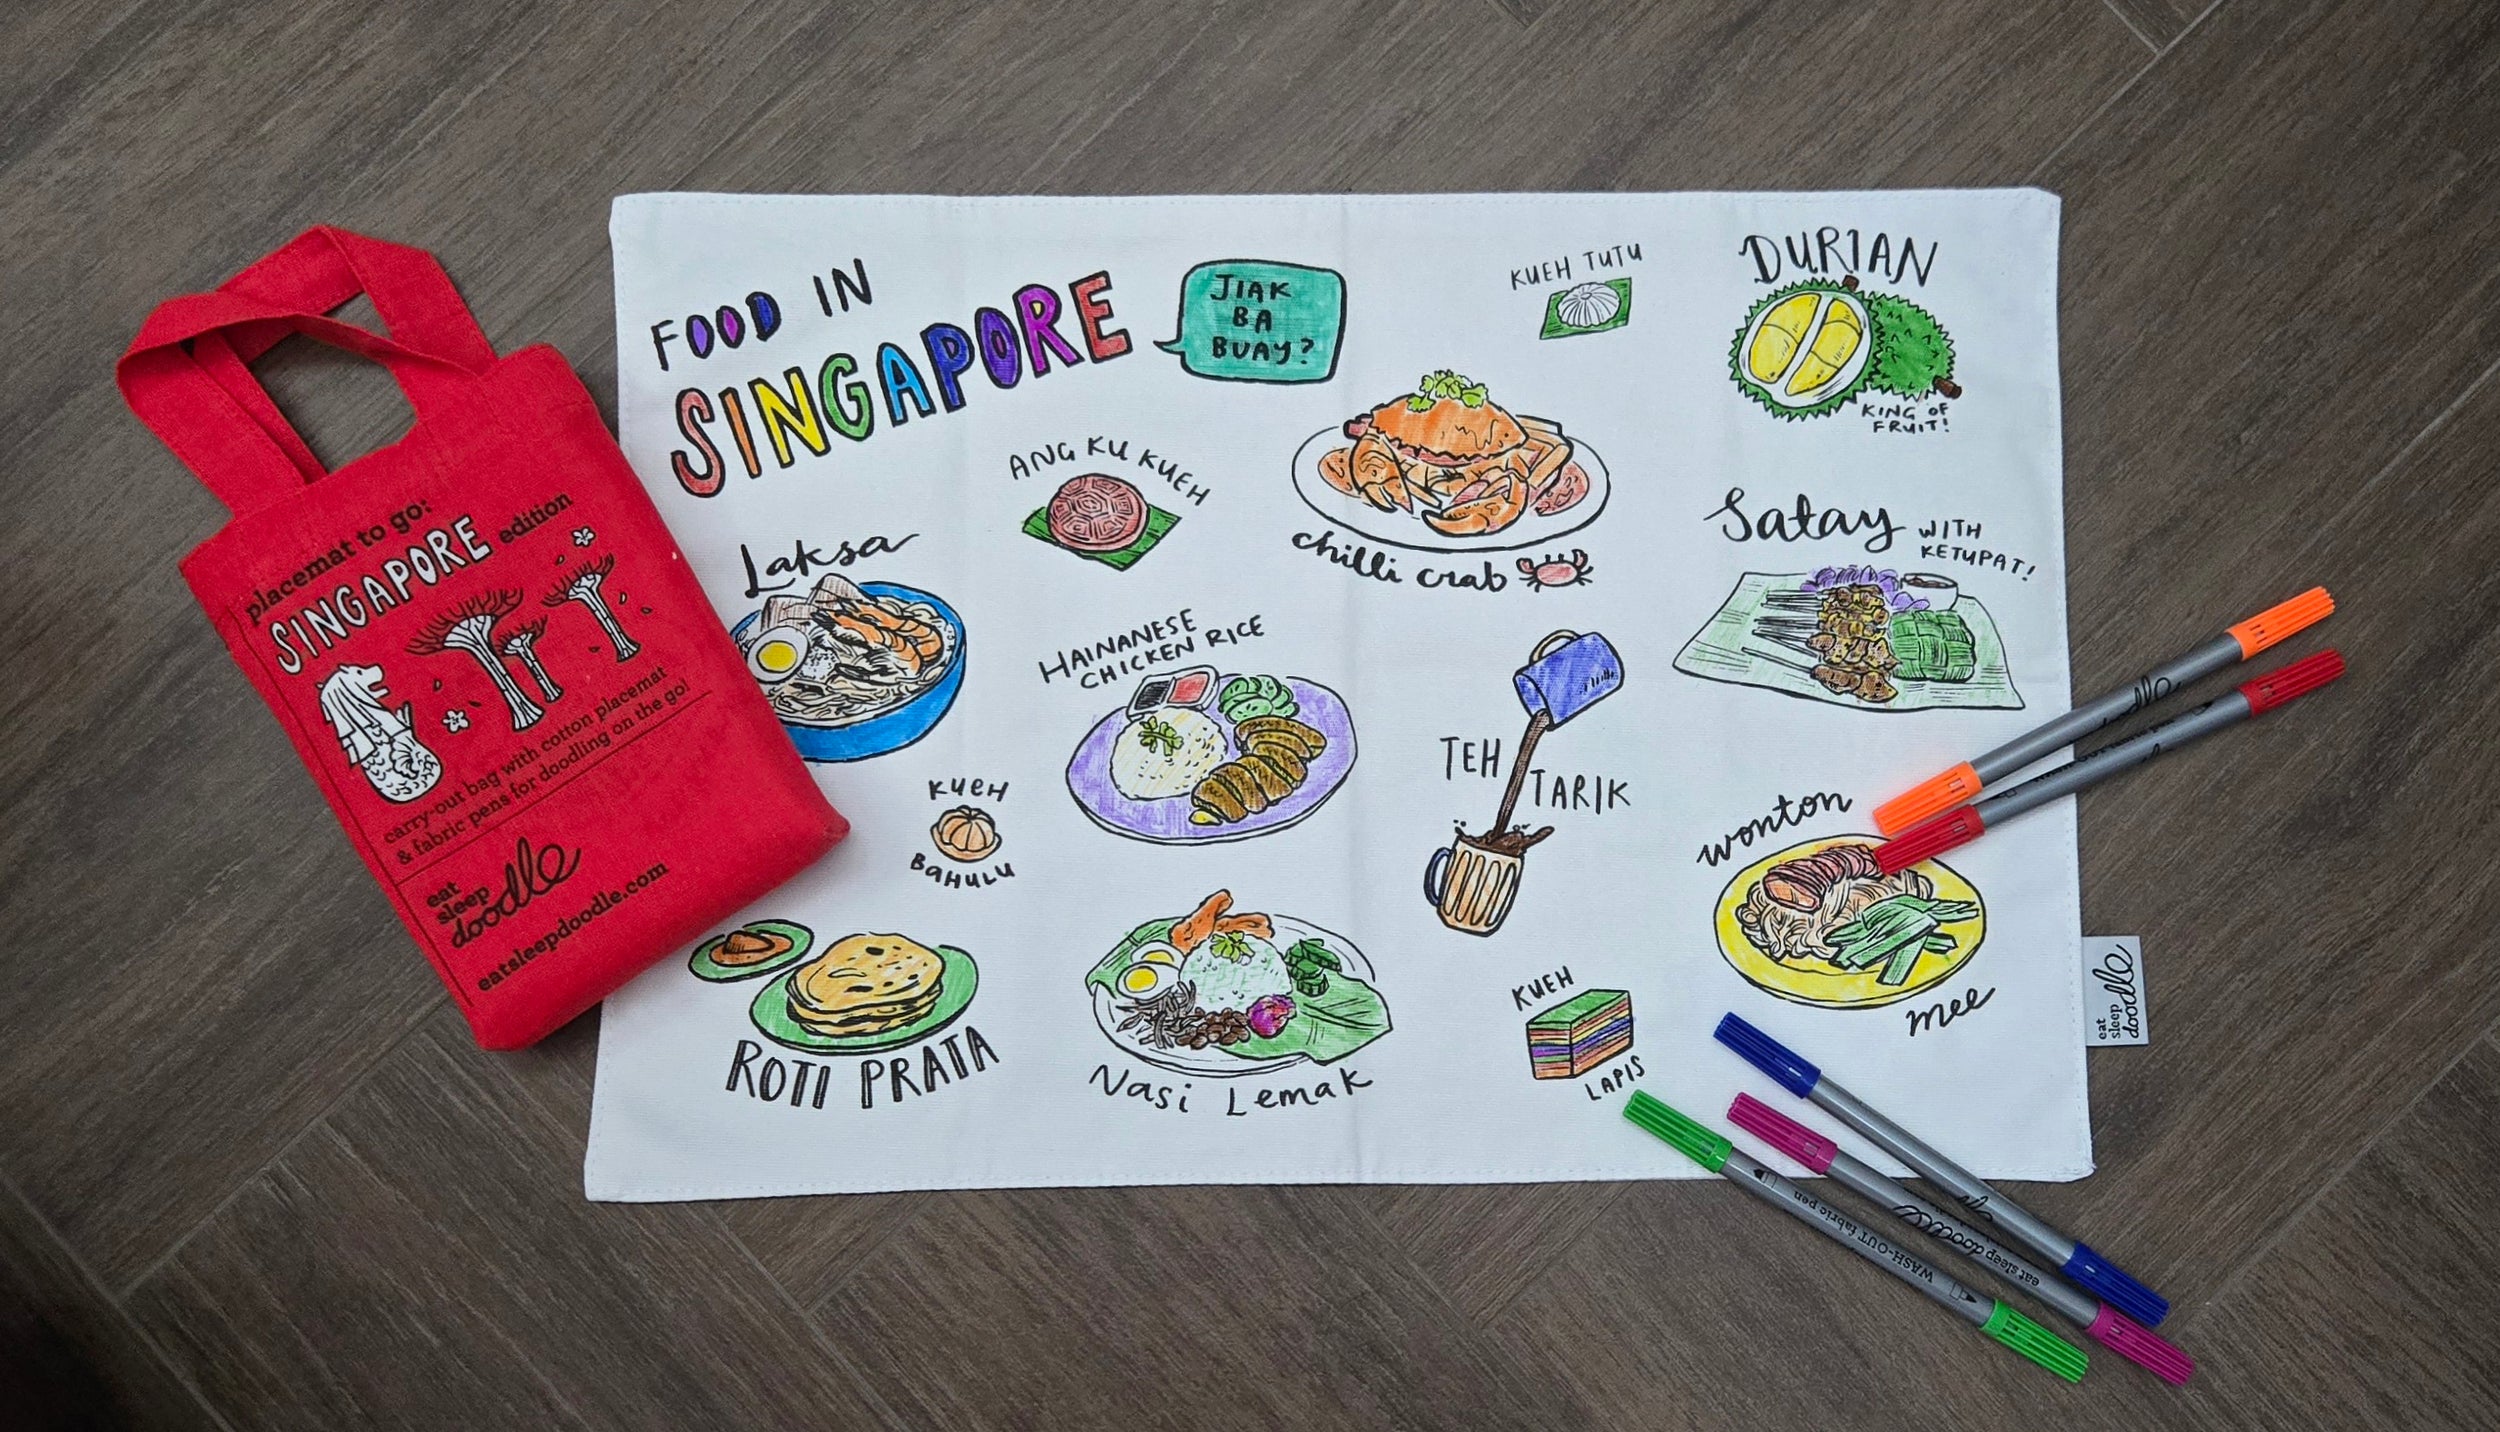 placemat to go:
SINGAPORE edition
carry-out bag with cotton placemat
& fabric pens for doodling on the go!
eat
sleep
doodle
eatsleepdoodle.com
FOOD IN
SINGAPORE
JIAK
BA
BUAY?
KUEH TUTU
DURIAN
KING OF
FRUIT!
ANG KU KUEH
chilli crab
Satay WITH
KETUPAT!
Laksa
HAINANESE
CHICKEN RICE
TEH
TARIK
KUEH
BAHULU
wonton
mee
ROTI PRATA
Nasi Lemak
KUEH
LAPIS
eat
sleep
doodle
doodle
WASH-OUT fabric pen
eat sleep doodle